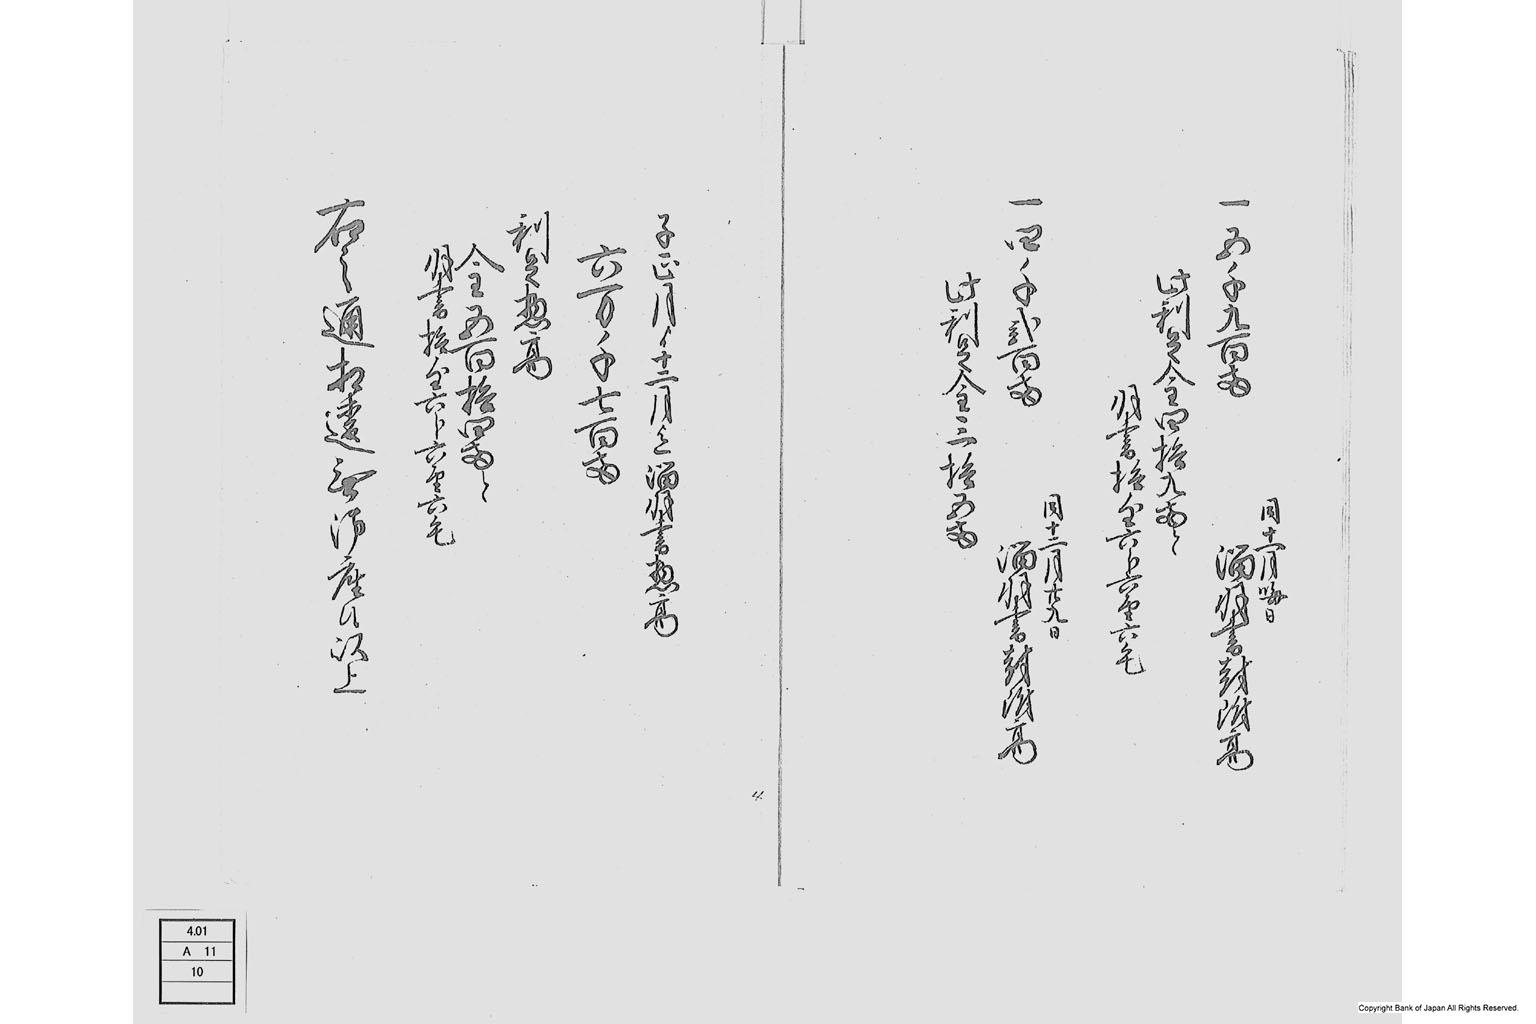 同十一月晦日
一五千九百両
溜羽書封附高
此利足金四拾九両と
羽書拾匁六分六厘六毛
同十二月廿九日
一四千弐百両
溜羽書封附高
此利足金三拾五両
子正月ゟ十二月迄溜羽書惣高
六万千七百両
利足惣高
金五百拾四両と
羽書拾匁六分六厘六毛
右之通相違無御座候以上
4
4.01
A 11
10
Copyright Bank of Japan All Rights Reserved.